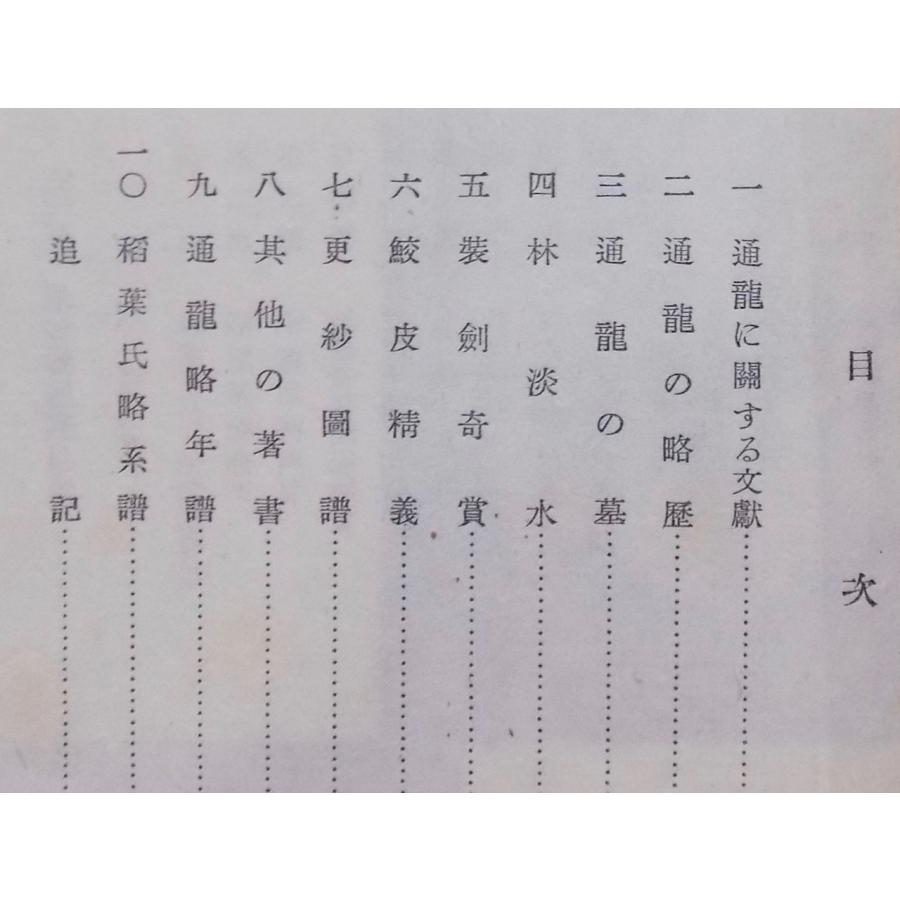 目次
一 通龍に關する文獻
二 通龍の略歷
三 通龍の墓
四 林淡水
五 裝劍奇賞
六 鮫皮精義
七 更紗圖譜
八 其他の著書
九 通龍略年譜
一〇 稻葉氏略系譜
追記